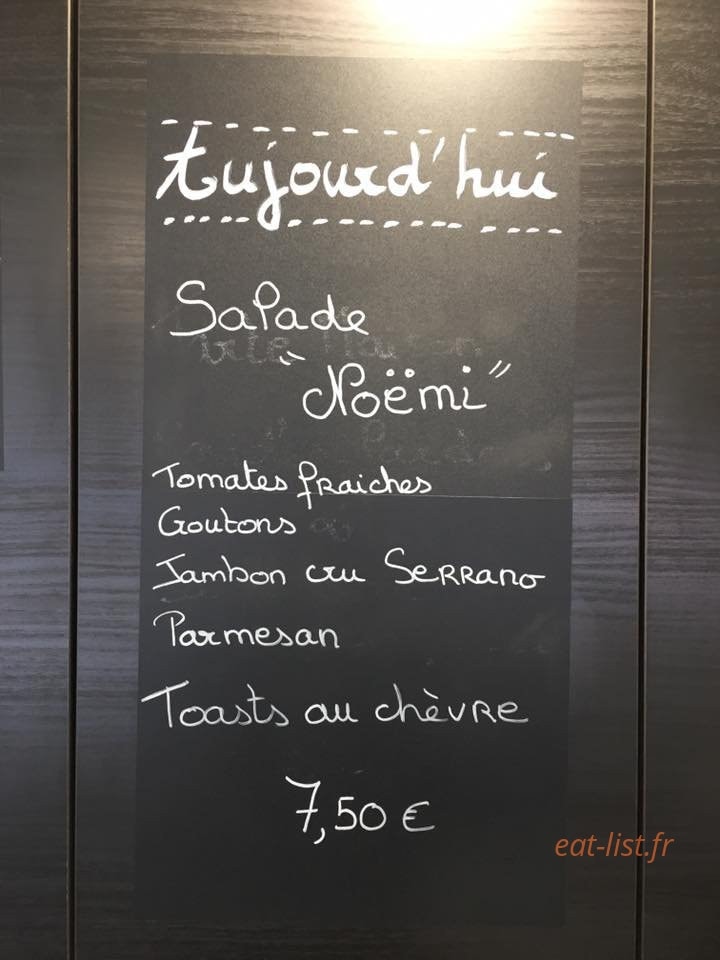 Aujourd'hui
Salade
"Noëmi"
Tomates fraiches
Goutons
Jambon cru Serrano
Parmesan
Toasts au chèvre
7,50 €
eat-list.fr